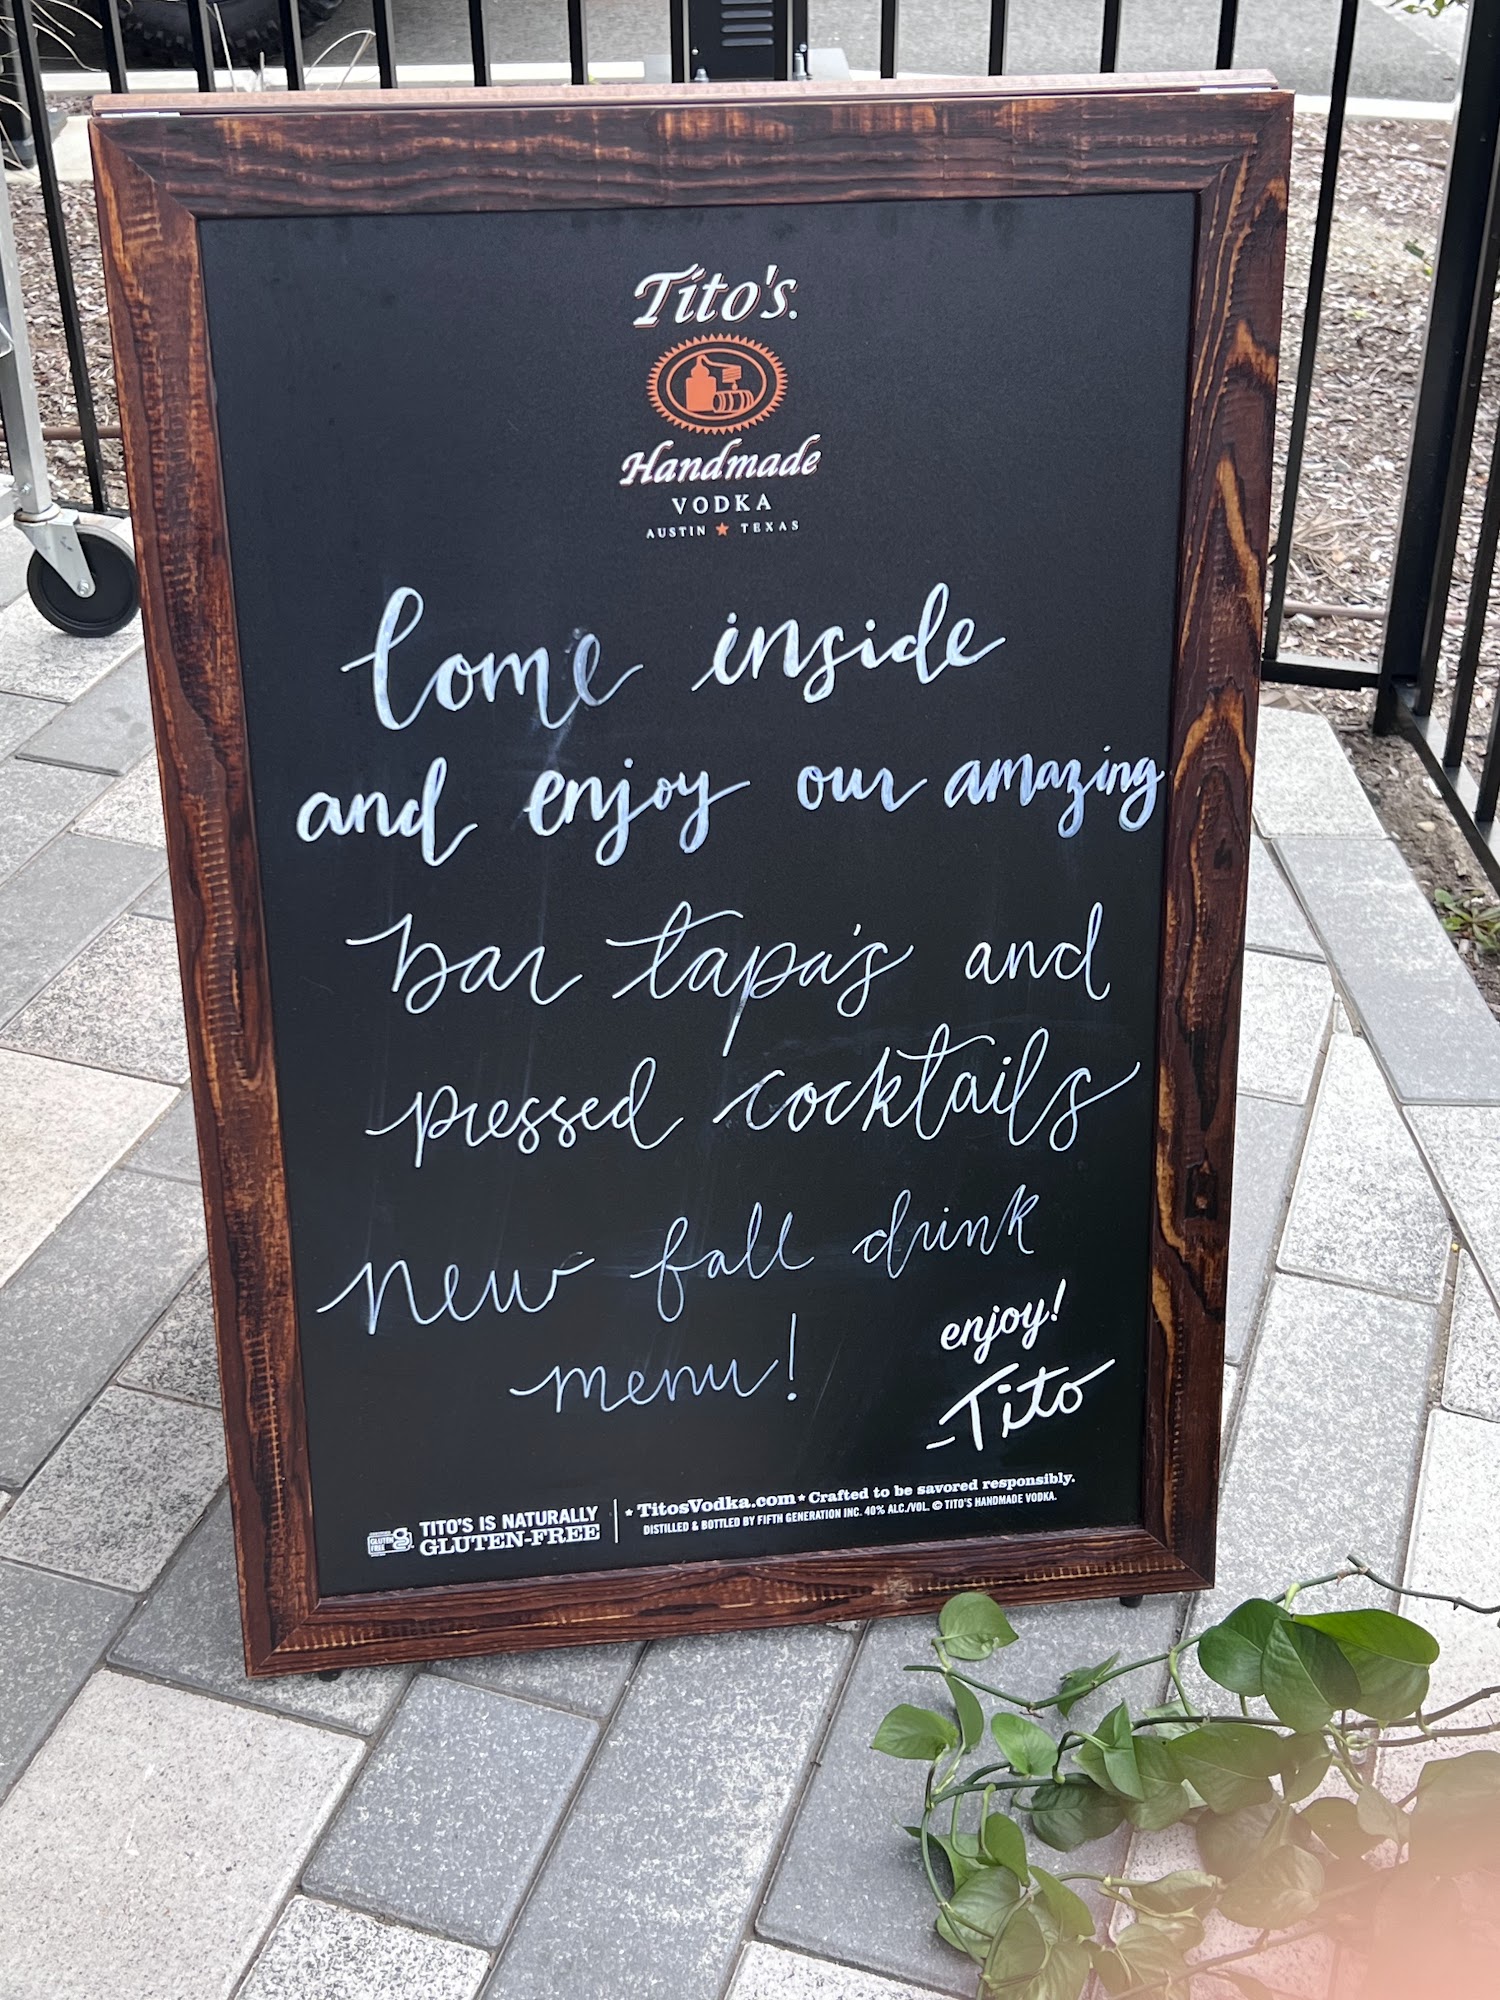 Tito's.
Handmade
VODKA
AUSTIN ★ TEXAS
Come inside
and enjoy our amazing
bar tapa's and
pressed cocktails
New fall drink
menu!
enjoy!
-Tito
GLUTEN FREE
TITO'S IS NATURALLY
GLUTEN-FREE
★ TitosVodka.com ★ Crafted to be savored responsibly.
DISTILLED & BOTTLED BY FIFTH GENERATION INC. 40% ALC./VOL. © TITO'S HANDMADE VODKA.